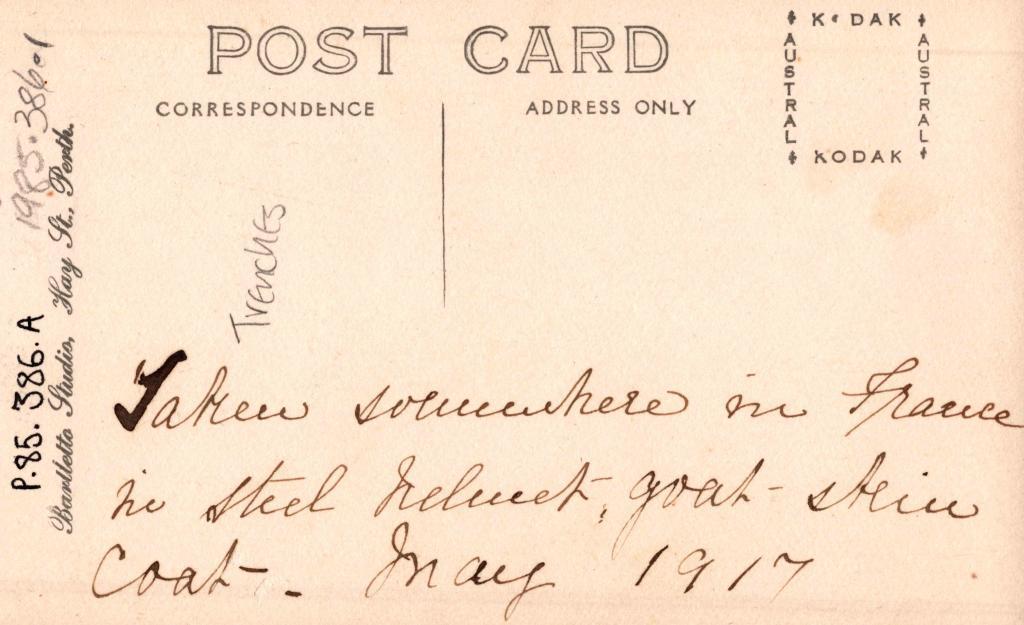 POST CARD
CORRESPONDENCE
ADDRESS ONLY
KODAK
AUSTRAL
AUSTRAL
KODAK
1985.386.1
P.85.386.A
Bartletto Studio, Hay St., Perth.
Trenches
Taken somewhere in France
in steel helmet, goat-skin
Coat- May 1917